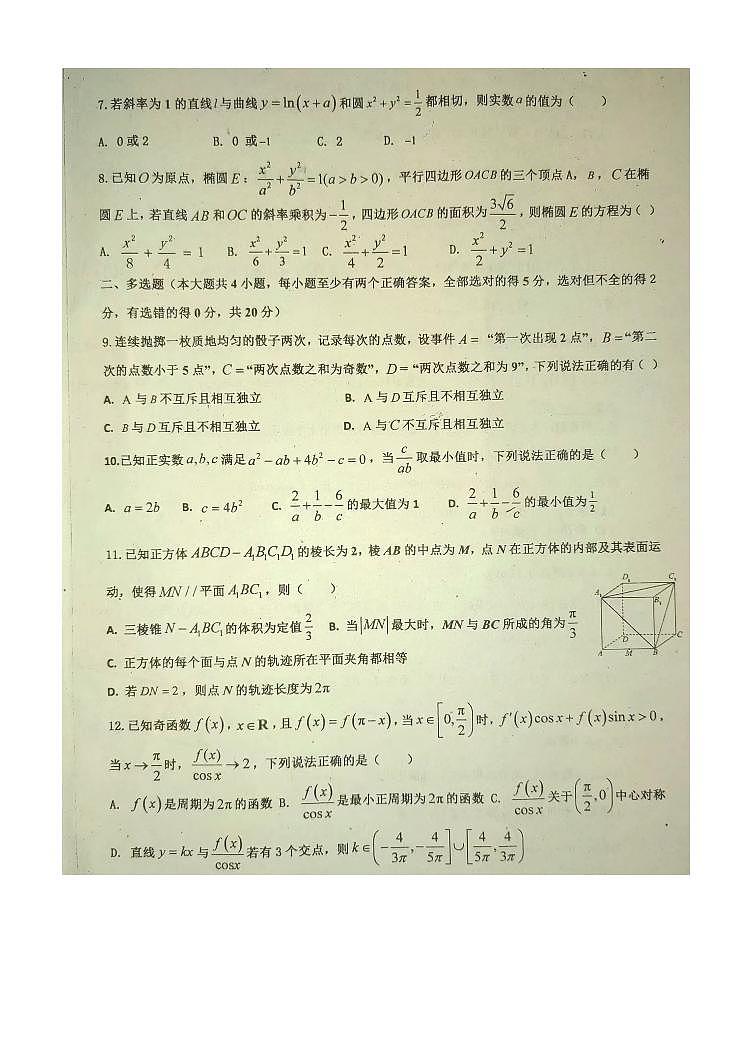 7.若斜率为 1 的直线 l 与曲线 y = ln(x + a) 和圆 x² + y² = 1/2 都相切，则实数 a 的值为（　　）
A. 0 或 2　　B. 0 或 -1　　C. 2　　D. -1
8.已知 O 为原点，椭圆 E：x²/a² + y²/b² = 1(a > b > 0)，平行四边形 OACB 的三个顶点 A，B，C 在椭
圆 E 上，若直线 AB 和 OC 的斜率乘积为 -1/2，四边形 OACB 的面积为 3√6/2，则椭圆 E 的方程为（ ）
A. x²/8 + y²/4 = 1　B. x²/6 + y²/3 = 1　C. x²/4 + y²/2 = 1　D. x²/2 + y² = 1
二、多选题（本大题共 4 小题，每小题至少有两个正确答案，全部选对的得 5 分，选对但不全的得 2
分，有选错的得 0 分，共 20 分）
9.连续抛掷一枚质地均匀的骰子两次，记录每次的点数，设事件 A = “第一次出现 2 点”，B =“第二
次的点数小于 5 点”，C =“两次点数之和为奇数”，D =“两次点数之和为 9”，下列说法正确的有（ ）
A. A 与 B 不互斥且相互独立　　B. A 与 D 互斥且不相互独立
C. B 与 D 互斥且不相互独立　　D. A 与 C 不互斥且相互独立
10.已知正实数 a,b,c 满足 a² - ab + 4b² - c = 0，当 c/ab 取最小值时，下列说法正确的是（　　）
A. a = 2b　B. c = 4b²　C. 2/a + 1/b - 6/c 的最大值为 1　D. 2/a + 1/b - 6/c 的最小值为 1/2
11.已知正方体 ABCD - A₁B₁C₁D₁ 的棱长为 2，棱 AB 的中点为 M，点 N 在正方体的内部及其表面运
动，使得 MN // 平面 A₁BC₁，则（　　）
A. 三棱锥 N - A₁BC₁ 的体积为定值 2/3　B. 当 |MN| 最大时，MN 与 BC 所成的角为 π/3
C. 正方体的每个面与点 N 的轨迹所在平面夹角都相等
D. 若 DN = 2，则点 N 的轨迹长度为 2π
D₁ C₁
A₁ B₁
D C
A M B
12.已知奇函数 f(x)，x∈R，且 f(x) = f(π - x)，当 x∈[0, π/2) 时，f′(x)cos x + f(x)sin x > 0，
当 x → π/2 时，f(x)/cos x → 2，下列说法正确的是（　　）
A. f(x) 是周期为 2π 的函数 B. f(x)/cos x 是最小正周期为 2π 的函数 C. f(x)/cos x 关于 (π/2, 0) 中心对称
D. 直线 y = kx 与 f(x)/cosx 若有 3 个交点，则 k∈(-4/3π, -4/5π]∪[4/5π, 4/3π)